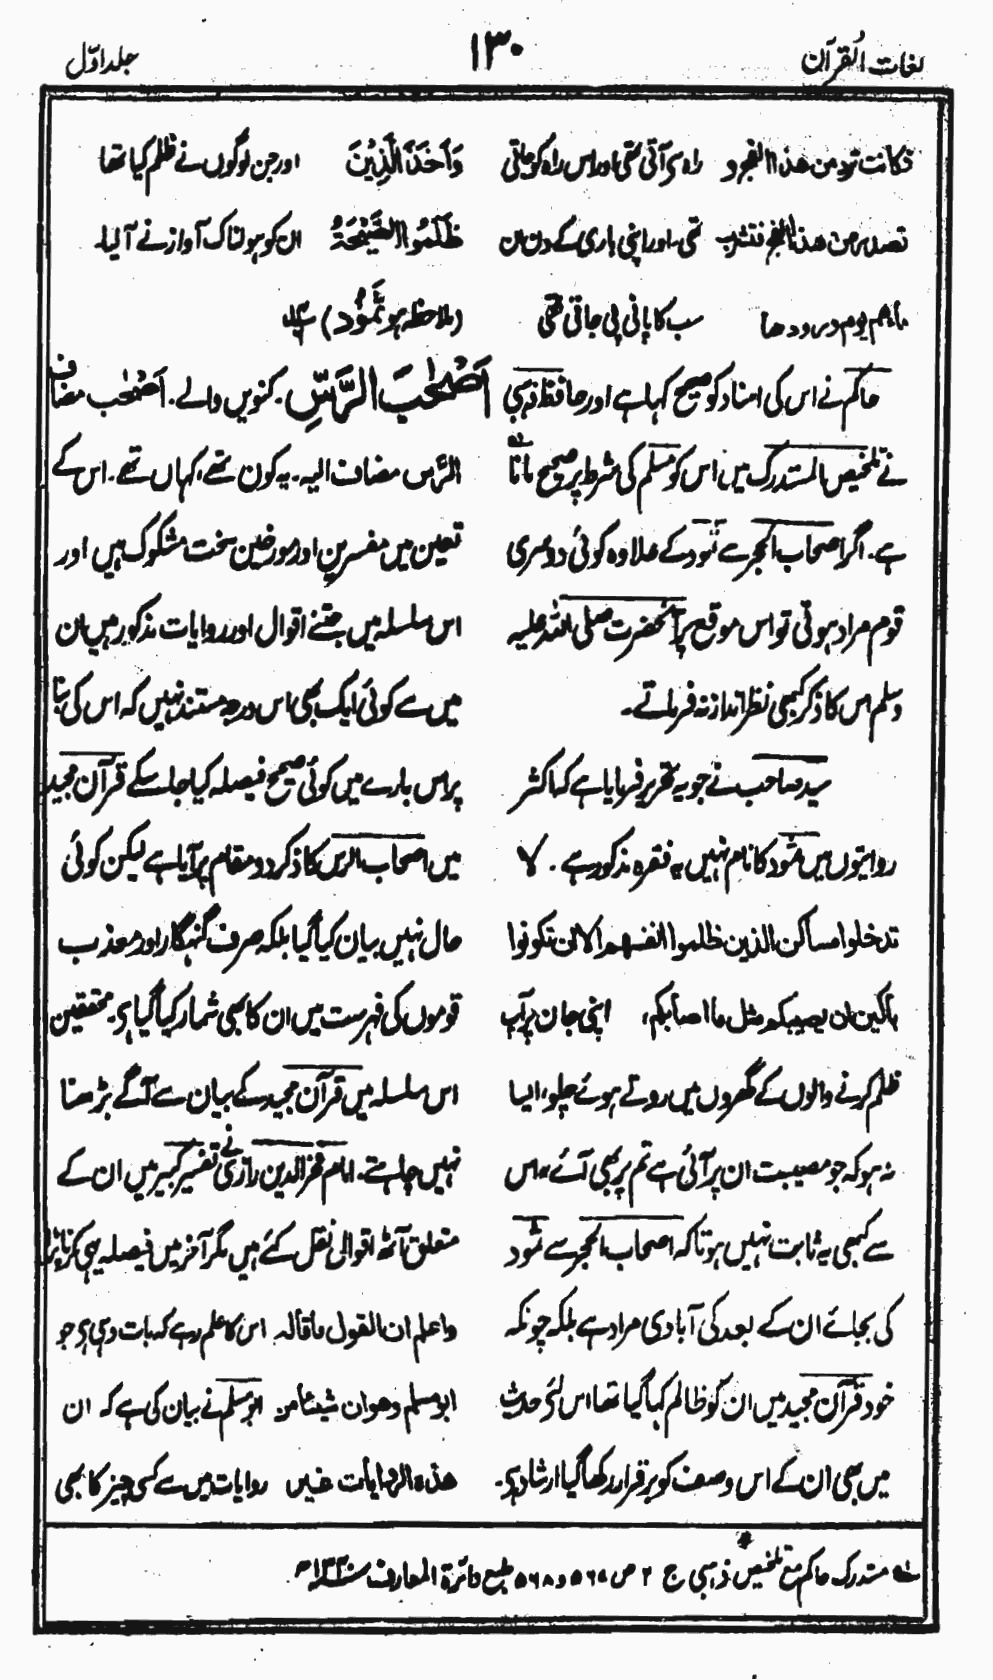 لغات القرآن
۱۳۰
جلد اوّل
فکانت ترد من ھذا الفج و راہ سے آتی تھی اور اس راہ کو جاتی
تصدر من ھذا الفج فتشرب تھی۔ اور اپنی باری کے دن ان
ماءھم یوم ورودھا سب کا پانی پی جاتی تھی
حاکم نے اس کی اسناد کو صحیح کہا ہے اور حافظ ذہبی
نے تلخیص المستدرک میں اس کو مسلم کی شرط پر صحیح مانا
ہے۔ اگر اصحاب الحجر سے ثمود کے علاوہ کوئی دوسری
قوم مراد ہوتی تو اس موقع پر آنحضرت صلی اللہ علیہ
وسلم اس کا ذکر کبھی نظر انداز نہ فرماتے۔
سید صاحب نے جو یہ تحریر فرمایا ہے کہ اکثر
روایتوں میں ثمود کا نام نہیں یہ فقرہ مذکور ہے۔ لا
تدخلوا مساکن الذین ظلموا انفسھم الا ان تکونوا
باکین ان یصیبکم مثل ما اصابکم، اپنی جان پر آپ
ظلم کرنے والوں کے گھروں میں روتے ہوئے چلو، ایسا
نہ ہو کہ جو مصیبت ان پر آئی ہے تم پر بھی آئے" اس
سے کبھی یہ ثابت نہیں ہوتا کہ اصحاب الحجر سے ثمود
کی بجائے ان کے بعد کی آبادی مراد ہے بلکہ چونکہ
خود قرآن مجید میں ان کو ظالم کہا گیا تھا اس لئے حدیث
میں بھی ان کے اس وصف کو برقرار رکھا گیا ارشاد ہے۔
وَاَخَذَ الَّذِیْنَ اور جن لوگوں نے ظلم کیا تھا
ظَلَمُوا الصَّیْحَۃُ ان کو ہولناک آواز نے آلیا۔
(ملاحظہ ہو ثَمُوْد)
اَصْحٰبَ الرَّسِّ۔ کنویں والے۔ اَصْحٰب مضاف
الرَّس مضاف الیہ۔ یہ کون تھے، کہاں تھے۔ اس کے
تعین میں مفسرین اور مورخین سخت مشکوک ہیں اور
اس سلسلہ میں جتنے اقوال اور روایات مذکور ہیں ان
میں سے کوئی ایک بھی اس درجہ مستند نہیں کہ اس کی بنا
پر اس بارے میں کوئی صحیح فیصلہ کیا جاسکے قرآن مجید
میں اصحاب الرس کا ذکر دو مقام پر آیا ہے لیکن کوئی
حال نہیں بیان کیا گیا بلکہ صرف گنہگار اور معذب
قوموں کی فہرست میں ان کا بھی شمار کیا گیا ہے۔ محققین
اس سلسلہ میں قرآن مجید کے بیان سے آگے بڑھنا
نہیں چاہتے۔ امام فخر الدین رازی نے تفسیر کبیر میں ان کے
متعلق آٹھ اقوال نقل کئے ہیں مگر آخر میں فیصلہ یہی کرنا پڑا
واعلم ان القول ما قالہ اس کا علم رہے کہ بات وہی ہے جو
ابو مسلم وھو ان شیئًا من ابو مسلم نے بیان کی ہے کہ ان
ھذہ الروایات غیر روایات میں سے کسی چیز کا بھی
لہ مستدرک حاکم مع تلخیص ذہبی ج ۲ ص ۵۶۷ و ۵۶۸ طبع دائرۃ المعارف